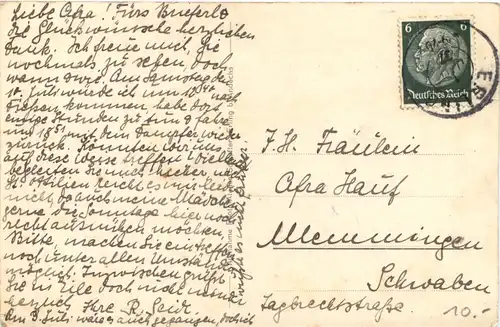 Liebe Afra! Fürs Brieferl u.
die Glückwünsche herzlichen
Dank. Ich freue mich, Sie
nochmals zu sehen, doch
wann u. wie? Am Samstag de
10. Juli würde ich um 10 40 nach
Dießen kommen, habe dort
einige Stunden zu tun u. fahre
um 18 51 mit dem Dampfer wieder
zurück. Könnten wir uns
auf diese Weise treffen? Vielleicht
begleiten Sie mich
St. Ottilien reicht es mir leider
nicht, da auch meine Mädchen
gerne die Sonntage hier noch
recht ausnützen möchten.
Bitte, machen Sie ein Treffen
noch unter allen Umständen
möglich. Inzwischen grüßt
Sie in Eile doch nicht minder
herzlich Ihre R. Seidl
Am 3. Juli wäre es auch gegangen, doch ich
6 6
Deutsches Reich
F. H. Fräulein
Afra Hauf
Memmingen
Schwaben
10.-